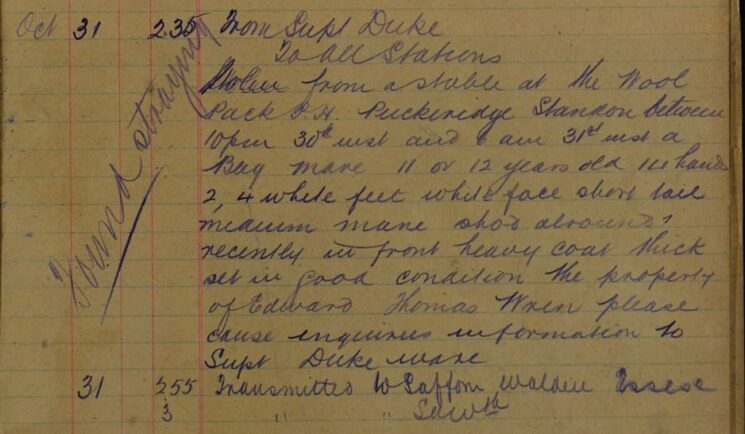 Oct 31 2.35 From Supt Duke
To All Stations
Stolen from a stable at the Wool
Pack P.H. Puckeridge Standon between
10pm 30th inst and 6 am 31st inst a
Bay mare 11 or 12 years old 14 hands
2, 4 white feet white face short tail
medium mane shod alround
recently in front heavy coat thick
set in good condition the property
of Edward Thomas Wren please
cause enquiries information to
Supt Duke Ware
Found straying
31 2.55 Transmitted to Saffron Walden Essex
3 " "